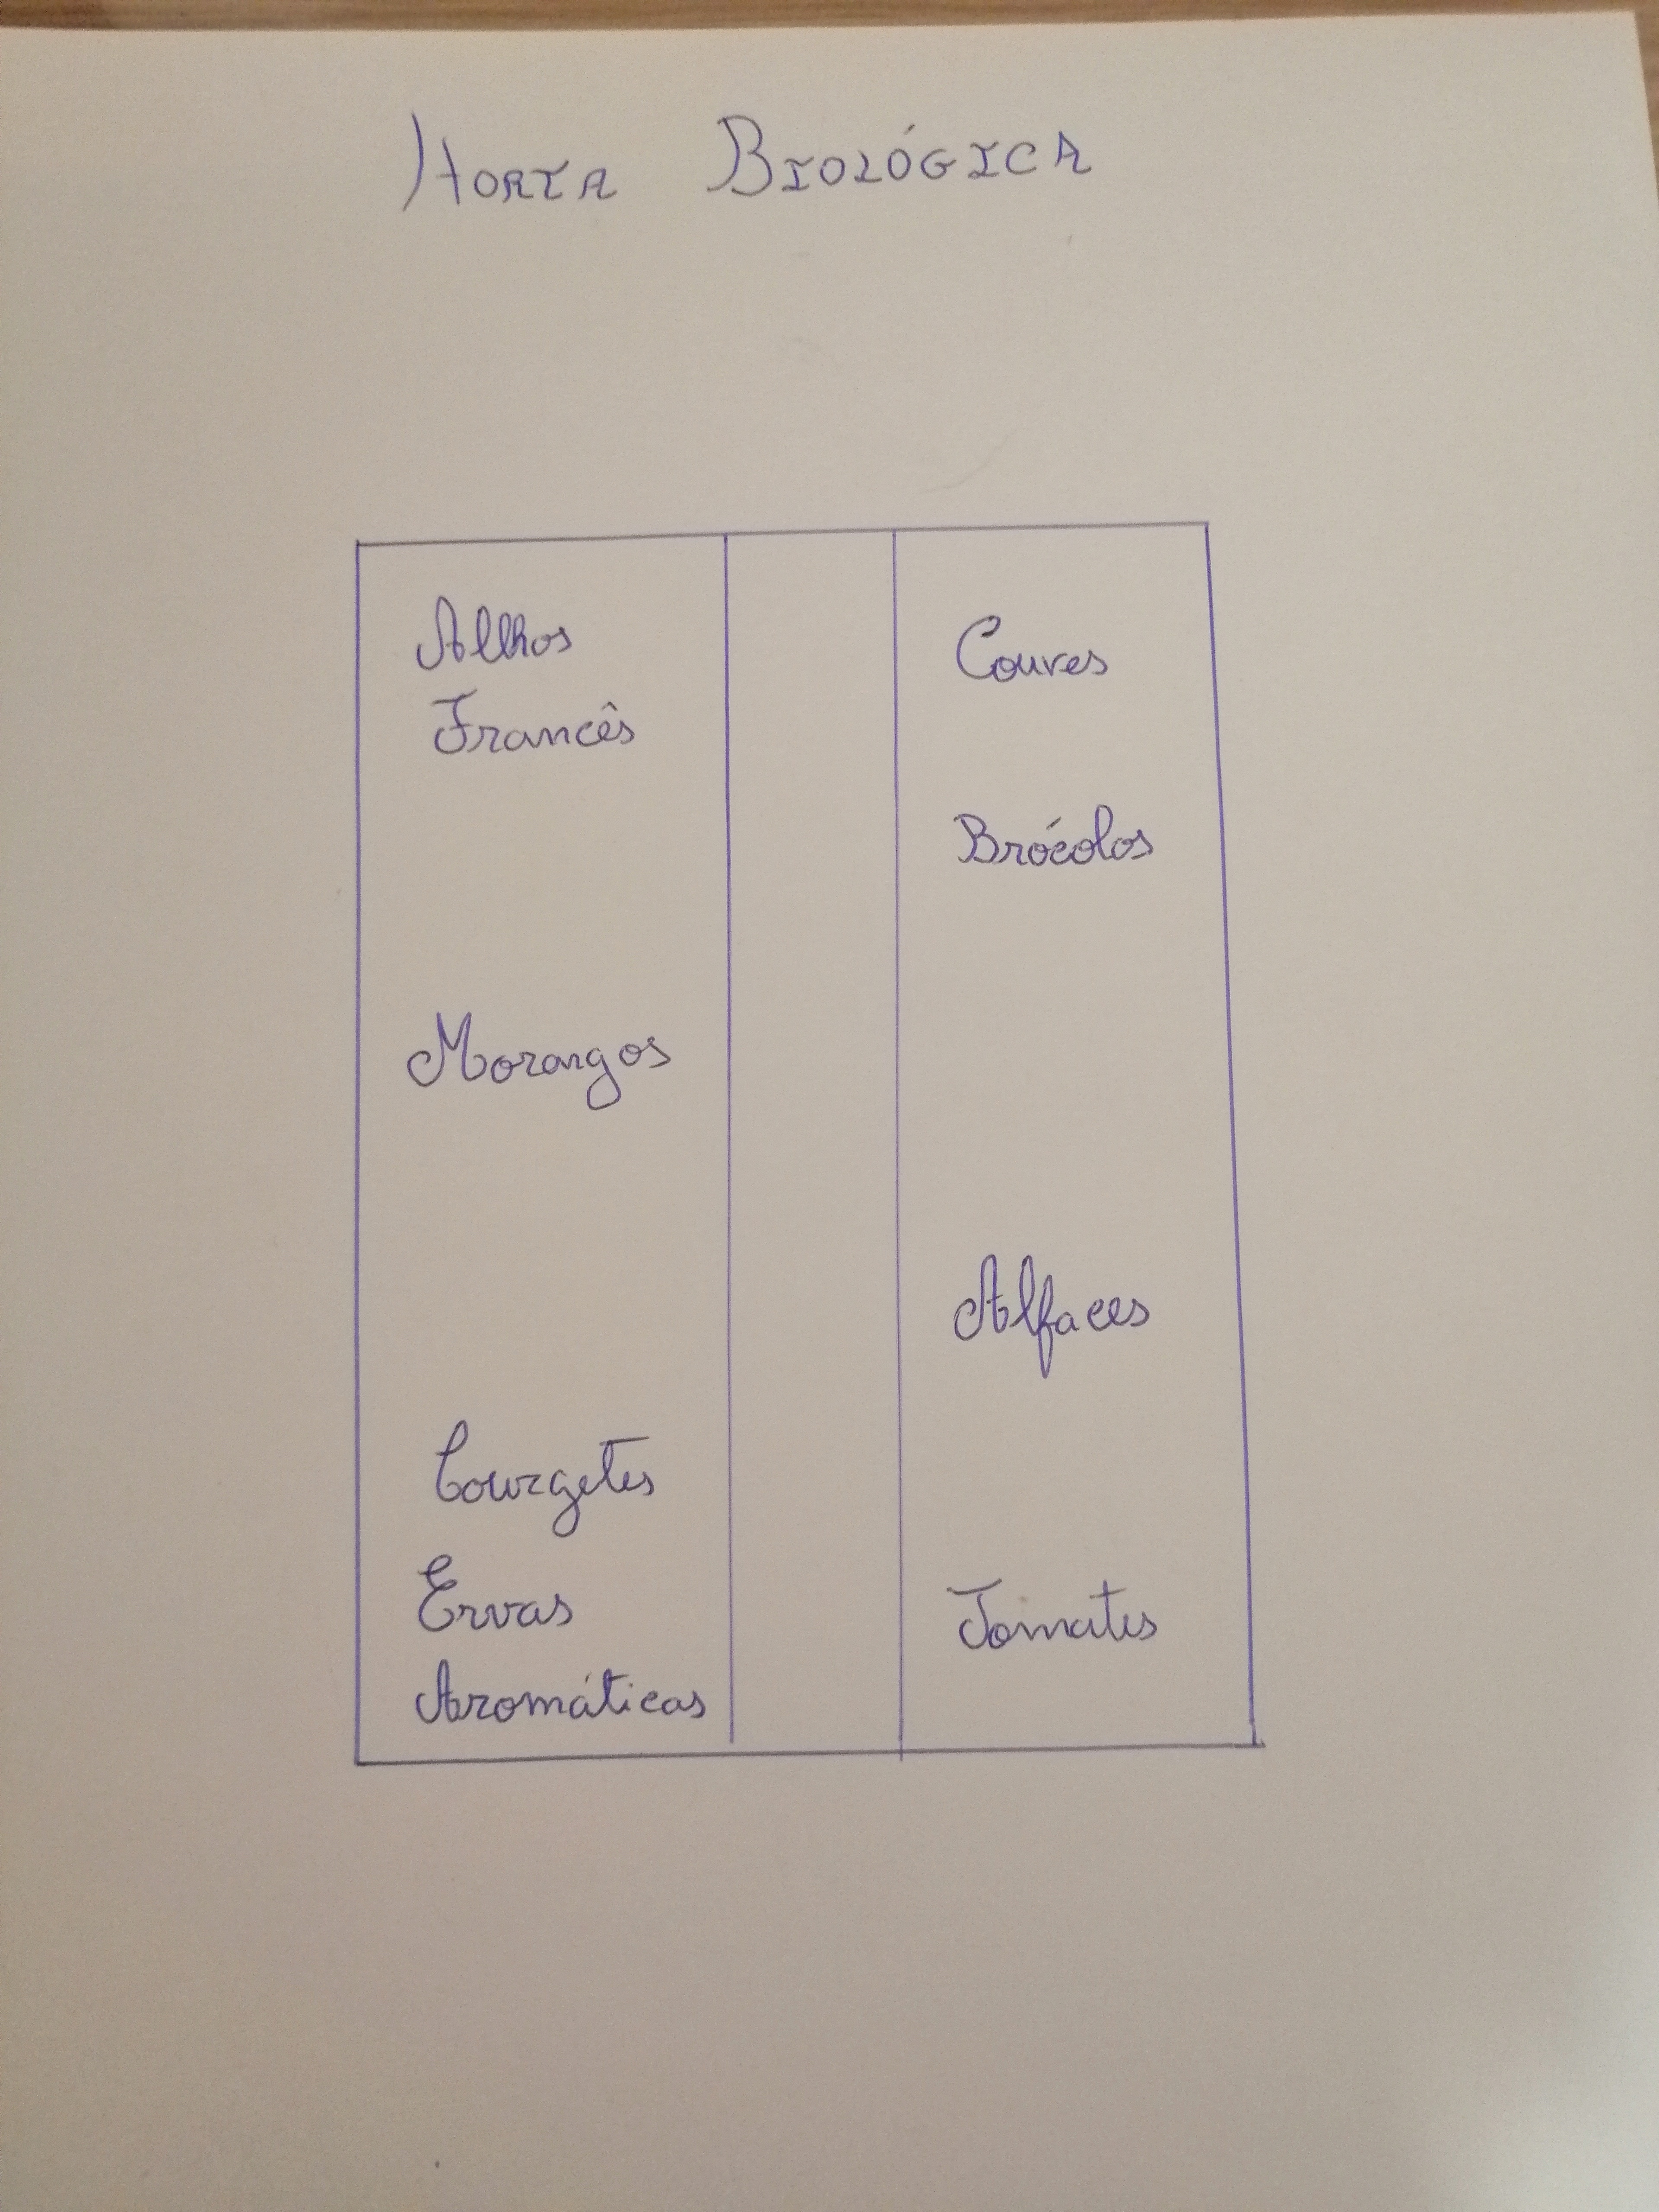 HORTA BIOLÓGICA
Alhos
Francês
Morangos
Courgetes
Ervas
Aromáticas
Couves
Brócolos
Alfaces
Tomates